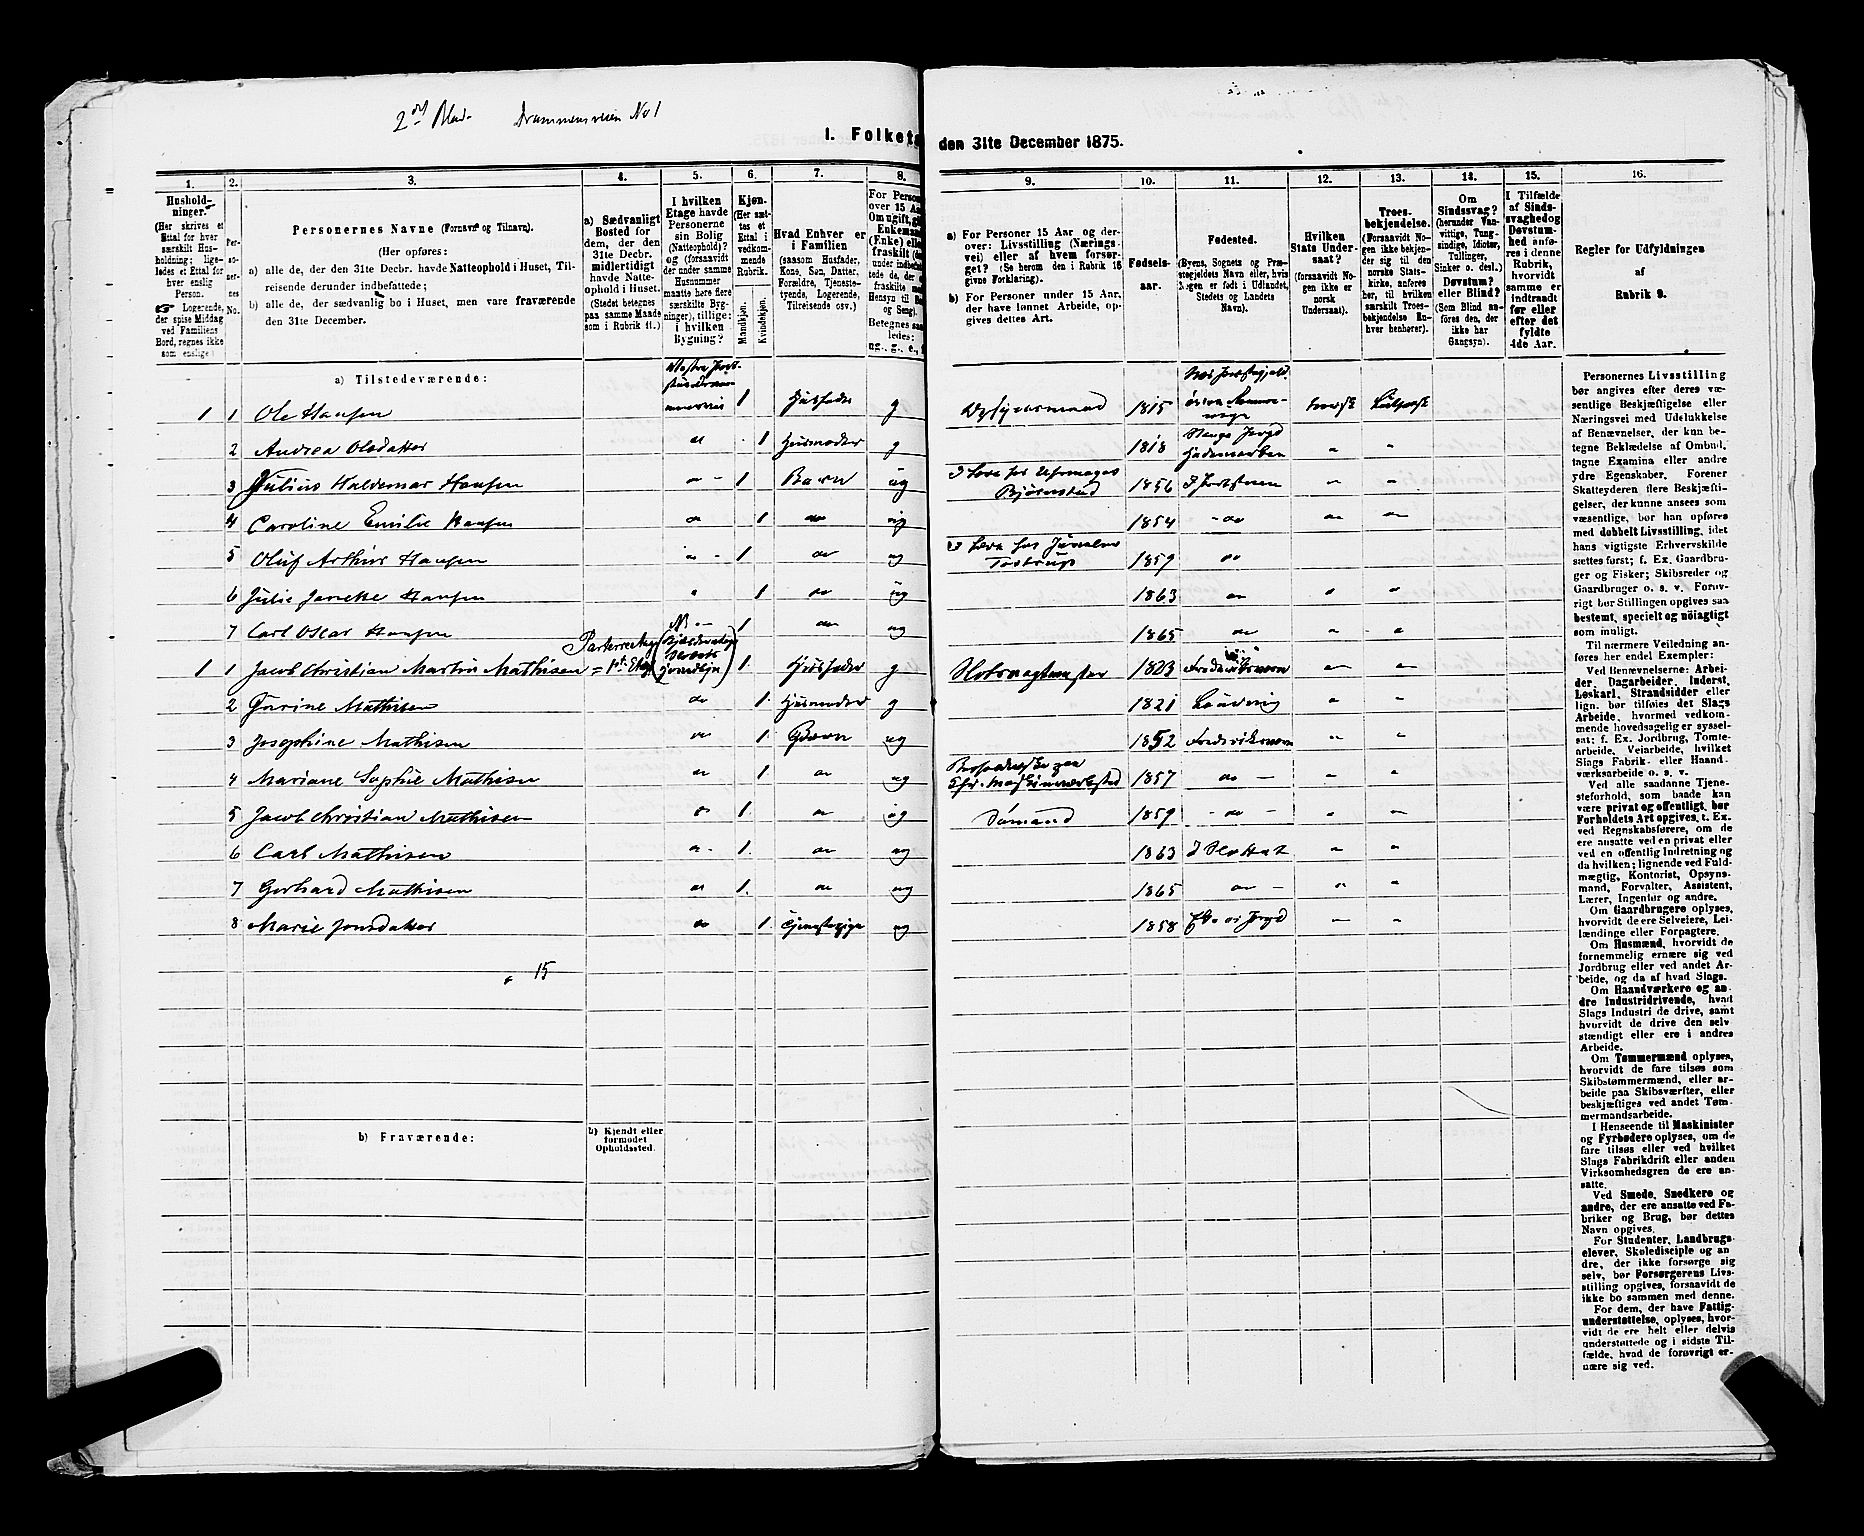 2det Blad. Drammensveien No 1
I. Folketæ
den 31te December 1875.
1. 2. 3. 4. 5. 6. 7. 8.
9. 10. 11. 12. 13. 14. 15. 16.
Hushold-
ninger.
(Her skrives et
Ettal for hver
særskilt Hus-
holdning; lige-
ledes et Ettal for
hver enslig
Person.
☞ Logerende,
der spise Middag
ved Familiens
Bord, regnes ikke
som enslige)
Per-
so-
ner-
nes
No.
Personernes Navne (Fornavn og Tilnavn).
(Her opføres:
a) alle de, der den 31te Decbr. havde Natteophold i Huset, Til-
reisende derunder indbefattede;
b) alle de, der sædvanlig bo i Huset, men vare fraværende
den 31te December.
a) Sædvanligt
Bosted for
dem, der den
31te Decbr.
midlertidigt
havde Natte-
ophold i Huset.
(Stedet betegnes
paa samme Maade
som i Rubrik 11.)
I hvilken
Etage havde
Personerne
sin Bolig
(Natteophold)?
og (forsaavidt
der under samme
Husnummer
maatte høre flere
særskilte Byg-
ninger), tillige:
i hvilken
Bygning?
Kjøn.
(Her sæt-
tes et
Ettal i
vedkom-
mende
Rubrik.
Mandkjøn.
Kvindekjøn.
Hvad Enhver er
i Familien
(saasom Husfader,
Kone, Søn, Datter,
Forældre, Tjeneste-
tyende, Logerende,
Tilreisende osv.)
For Person
over 15 Aa
Om ugift, gi
Enkeman
(Enke) elle
fraskilt (de
under indbef
tede de, de
fraskilte m
Hensyn til Bo
og Seng).
Betegnes saa
ledes:
ug., g., e., f
a) For Personer 15 Aar og der-
over: Livsstilling (Nærings-
vei) eller af hvem forsør-
get? (Se herom den i Rubrik 16
givne Forklaring).
b) For Personer under 15 Aar,
der have lønnet Arbeide, op-
gives dettes Art.
Fødsels-
aar.
Fødested.
(Byens, Sognets og Præ-
stegjeldets Navn eller, hvis
Nogen er født i Udlandet,
Stedets og Landets
Navn).
Hvilken
Stats Under-
saat?
(forsaavidt No-
gen ikke er
norsk
Undersaat).
Troes-
bekjendelse.
(Forsaavidt No-
gen ikke bekjen-
der sig til den
norske Stats-
kirke, anføres
her, til hvilken
særskilt Troes-
bekjendelse En-
hver henhører).
Om
Sindssvag?
(herunder Van-
vittige, Tung-
sindige, Idioter,
Tullinger,
Sinker o. desl.)
Døvstum?
eller Blind?
(Som Blind an-
føres den, der
ikke har
Gangsyn).
I Tilfælde
af Sinds-
svaghed og
Døvstum-
hed anfø-
res i denne
Rubrik,
hvorvidt
samme er
indtraadt
før eller
efter det
fyldte
4de Aar.
Regler for Udfyldningen
af
Rubrik 9.
a) Tilstedeværende:
1 1 Ole Hansen 1 Husfader g 1815 norsk
2 Andrea Olsdatter 1 Husmoder g 1818
3 Julius Waldemar Hansen 1 Barn ug 1856
4 Caroline Emilie Hansen do 1 do ug 1854 do
5 Oluf Arthur Hansen 1 do ug 1859 do
6 Julie Janette Hansen 1 do ug 1863 do
7 Carl Oscar Hansen 1 do ug 1865 do
1 1 Jacob Christian Martin Mathisen 1 Husfader g Slotsvagtmester 1823 Frederiksværn
2 Turine Mathisen do 1 Husmoder g 1821 Laurvig
3 Josephine Mathisen do 1 Barn ug 1852 Frederiksværn
4 Mariane Sophie Mathisen do 1 do ug 1857 do
5 Jacob Christian Mathisen do 1 do ug Sømand 1859 do
6 Carl Mathisen do 1 do ug 1863 I Slottet
7 Gerhard Mathisen do 1 do ug 1865 do
8 Marie Jonsdatter do 1 Tjenestepige ug 1858
15
b) Fraværende:
b) Kjendt eller
formodet
Opholdssted.
Personernes Livsstilling
bør angives efter deres væ-
sentlige Beskjæftigelse eller
Næringsvei med Udelukkelse
af Benævnelser, der kun be-
tegne Beklædelse af Ombud,
tagne Examina eller andre
ydre Egenskaber. Forener
Skatteyderen flere Beskjæfti-
gelser, der kunne ansees som
væsentlige, bør han opføres
med dobbelt Livsstilling, idet
hans vigtigste Erhvervskilde
sættes først; f. Ex. Gaardbru-
ger og Fisker; Skibsreder og
Gaardbruger o. s. v. Forøv-
rigt bør Stillingen opgives saa
bestemt, specielt og nöiagtigt
som muligt.
Til nærmere Veiledning an-
føres her endel Exempler:
Ved Benævnelserne: Arbei-
der, Dagarbeider, Inderst,
Løskarl, Strandsidder eller
lign. bør tilføies det Slags
Arbeide, hvormed vedkom-
mende hovedsagelig er syssel-
sat; f. Ex. Jordbrug, Tomte-
arbeide, Veiarbeide, hvilket
Slags Fabrik- eller Haand-
værksarbeide o. s. v.
Ved alle saadanne Tjene-
steforhold, som baade kan
være privat og offentligt, bør
Forholdets Art opgives, t. Ex.
ved Regnskabsførere, om de
ere ansatte ved en privat eller
ved en offentlig Indretning og
da hvilken; lignende ved Fuld-
mægtig, Kontorist, Opsyns-
mand, Forvalter, Assistent,
Lærer, Ingeniør og andre.
Om Gaardbrugere oplyses,
hvorvidt de ere Selveiere, Lei-
lændinge eller Forpagtere.
Om Husmænd, hvorvidt de
fornemmelig ernære sig ved
Jordbrug eller ved andet Ar-
beide, og da af hvad Slags.
Om Haandværkere og an-
dre Industridrivende, hvad
Slags Industri de drive, samt
hvorvidt de drive den selv-
stændigt eller ere i andres
Arbeide.
Om Tømmermænd oplyses,
hvorvidt de fare tilsøs som
Skibstømmermænd, eller ar-
beide paa Skibsværfter, eller
beskjæftiges ved andet Tøm-
mermandsarbeide.
I Henseende til Maskinister
og Fyrbødere oplyses, om de
fare tilsøs eller ved hvilket
Slags Fabrikdrift eller anden
Virksomhedsgren de ere an-
satte.
Ved Smede, Snedkere og
andre, der ere ansatte ved Fa-
briker og Brug, bør dettes
Navn opgives.
For Studenter, Landbrugs-
elever, Skoledisciple og an-
dre, der ikke forsørge sig
selv, bør Forsørgerens Livs-
stilling opgives, forsaavidt de
ikke bo sammen med denne.
For dem, der have Fattig-
understøttelse, oplyses, hvor-
vidt de ere helt eller delvis
understøttede og i sidste Til-
fælde, hvad de forøvrigt er-
nære sig ved.